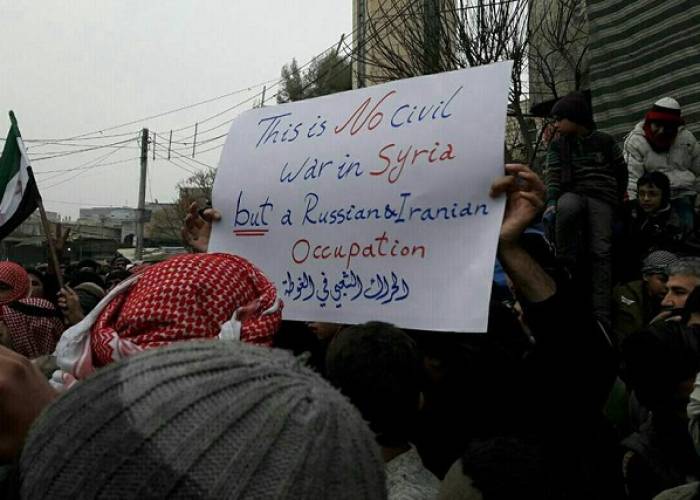 This is No Civil
War in Syria
but a Russian & Iranian
Occupation
الحراك الشعبي في الغوطة